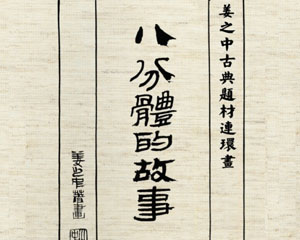 姜之中古典題材連環畫
八分體的故事
姜之中著畫